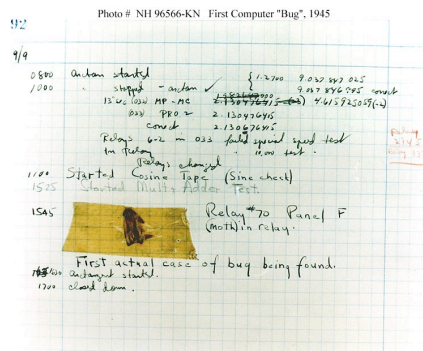 Photo # NH 96566-KN First Computer "Bug", 1945
92
9/9
0800 antan started
1000 " stopped - antan ✓ { 1.2700 9.037 847 025
9.037 846 795 conect
13" uc (032) MP - MC 4.615925059(-2)
(033) PRO 2 2.130476415
conect 2.130676415
Relays 6-2 in 033 failed special speed test
in Relay " 10.000 test .
Relays changed
1100 Started Cosine Tape (Sine check)
1525 Started Mult + Adder Test.
1545 Relay #70 Panel F
(Moth) in relay.
First actual case of bug being found.
1630 antangent started.
1700 closed down.